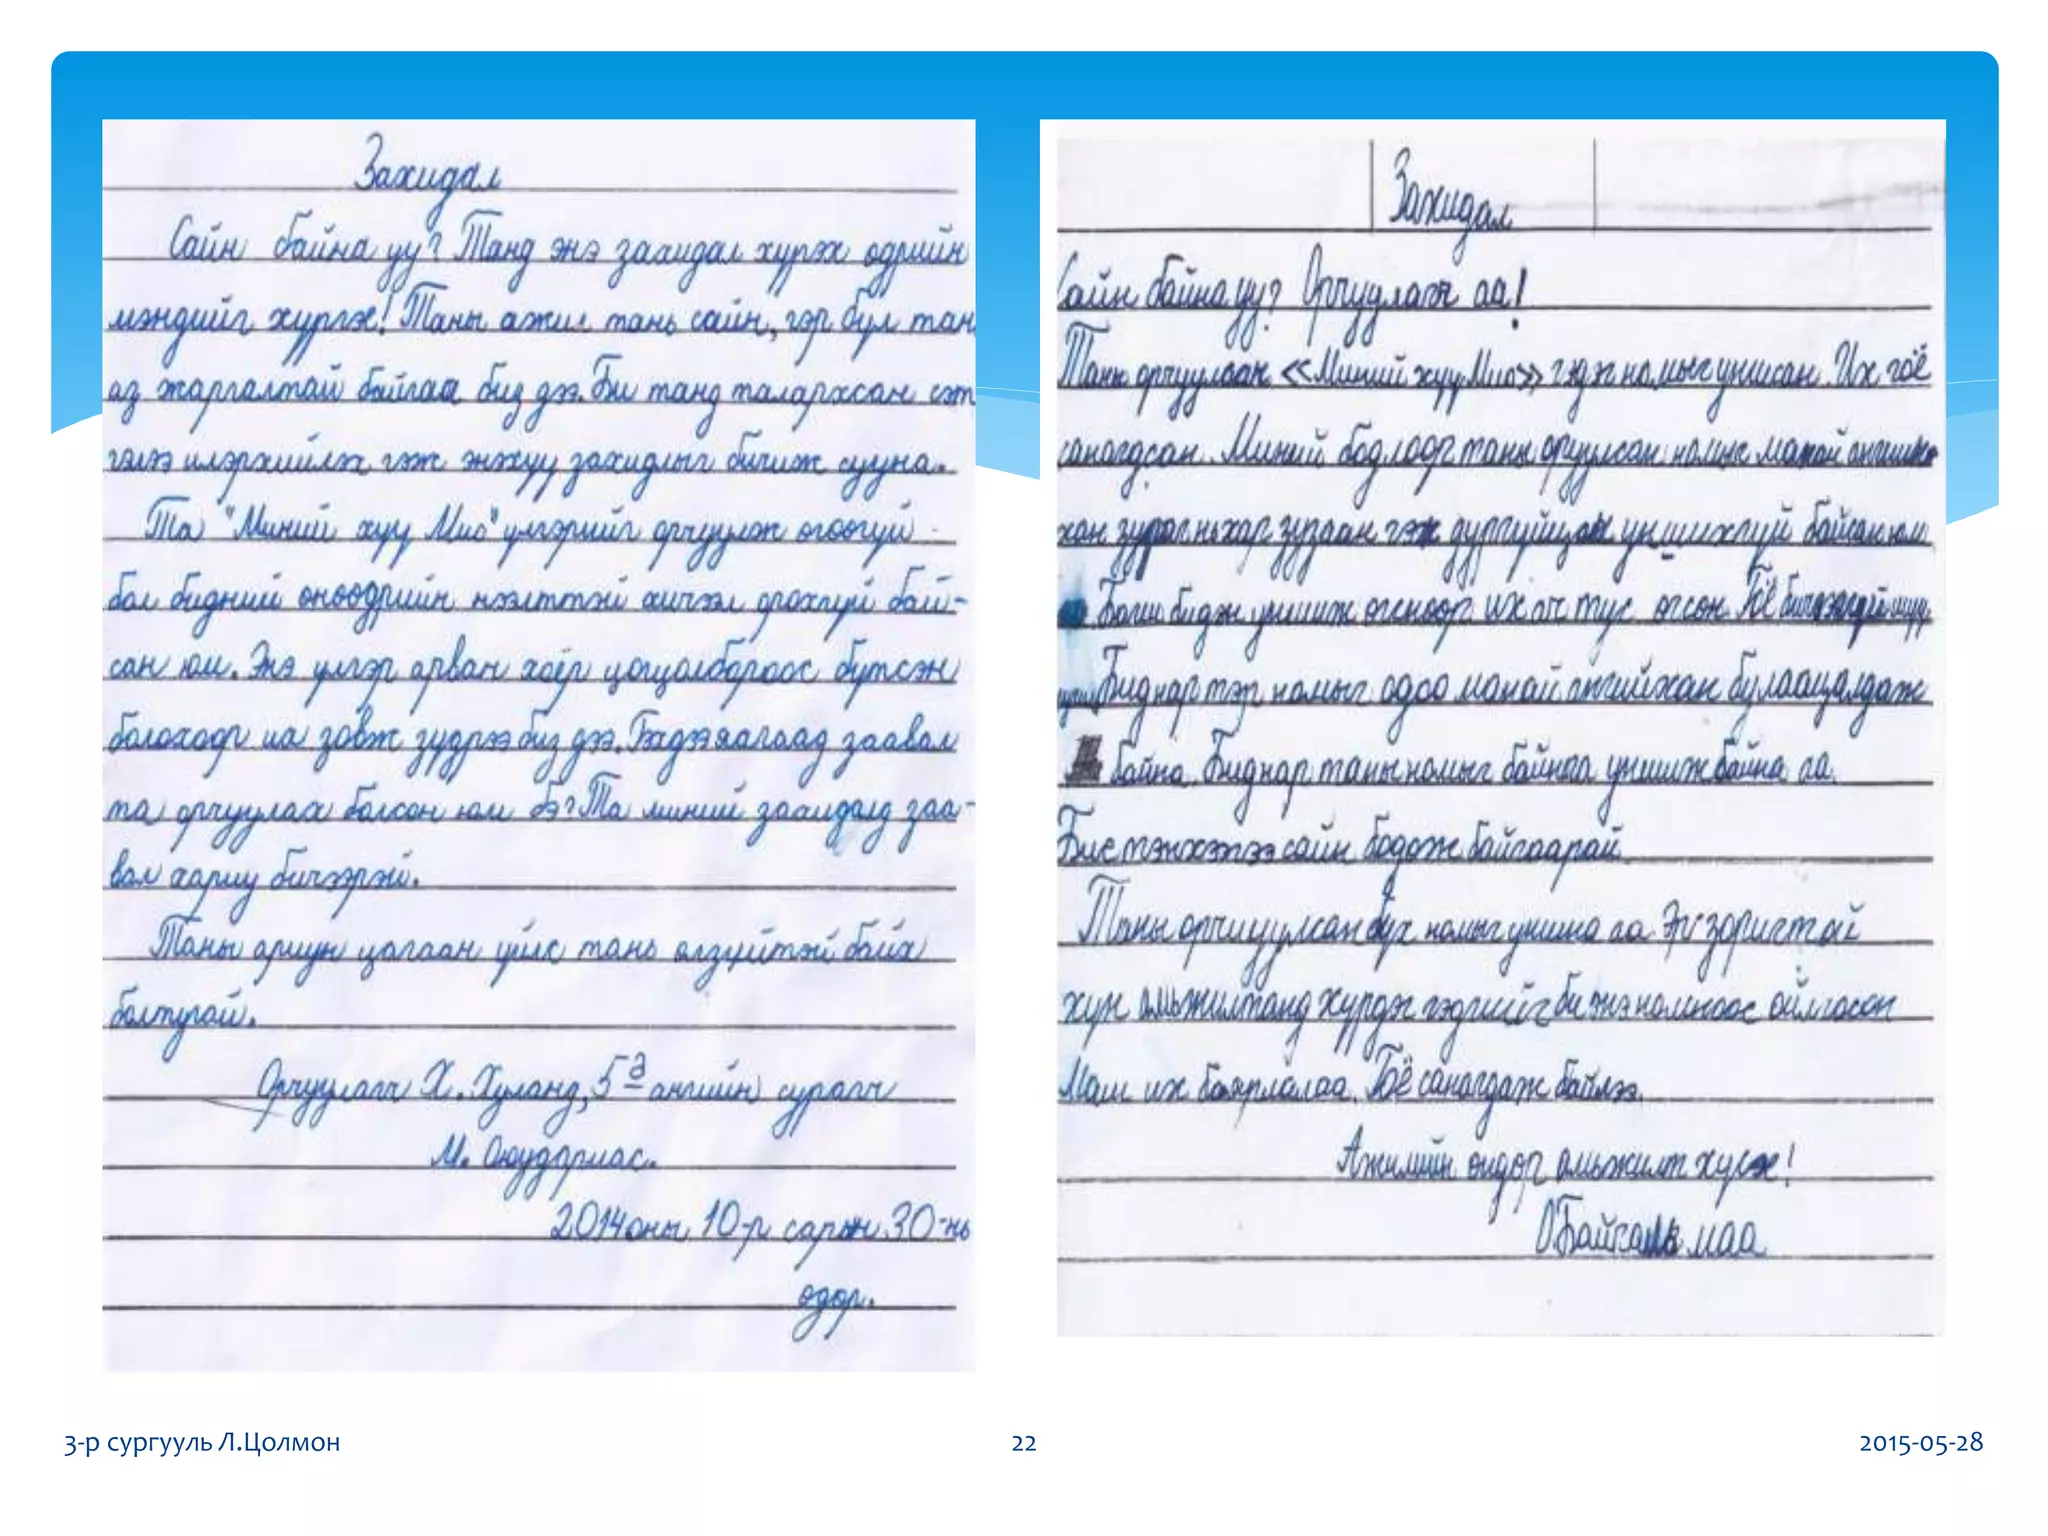 Захидал
Сайн байна уу? Танд энэ захидал хүрэх өдрийн
мэндийг хүргэе! Таны ажил тань сайн, гэр бүл тань
аз жаргалтай байгаа биз дээ. Би танд талархсан сэт
гэлээ илэрхийлэх гэж энэхүү захидлыг бичиж сууна.
Та "Миний хүү Мио" үлгэрийг орчуулж өгөөгүй
бол бидний өнөөдрийн нээлттэй хичээл орохгүй бай-
сан юм. Энэ үлгэр арван хоёр цогцолбороос бүтсэн
болохоор их зовж зүдрээ биз дээ. Гэхдээ яагаад заавал
та орчуулах болсон юм бэ? Та миний захидалд заа-
вал хариу бичээрэй.
Таны ариун цагаан үйлс тань өлзийтэй байх
болтугай.
Орчуулагч Х. Хуланд, 5ª ангийн сурагч
М. Оюудариас.
2014 оны 10-р сарын 30-нь
өдөр.
Захидал
Сайн байна уу? Орчуулагч аа!
Таны орчуулсан «Миний хүү Мио» гэдэг номыг уншсан. Их гоё
санагдсан. Миний бодлоор таны орчуулсан номыг манай ангийн
хан зураг нь хар зузаан гэж дургүйцэж уншихгүй байсан юм
Багш бидэнд уншиж өгснөөр их ач тус өгсөн. Гоё
Биднэр тэр номыг одоо манай ангийнхан булаацалдаж
байна. Биднэр таны номыг байнга уншиж байна аа.
Бие тэнхэлээ сайн бодож байгаарай
Таны орчиуулсан бүх номыг уншина аа. Эр зоригтай
хүн амьжилтанд хүрдэг гэдгийг би энэ номноос ойлгосон
Маш их баярлалаа. Гоё санагдаж байлээ.
Ажилийн өндөр амьжилт хүсье!
О Байгальмаа
3-р сургууль Л.Цолмон
22
2015-05-28